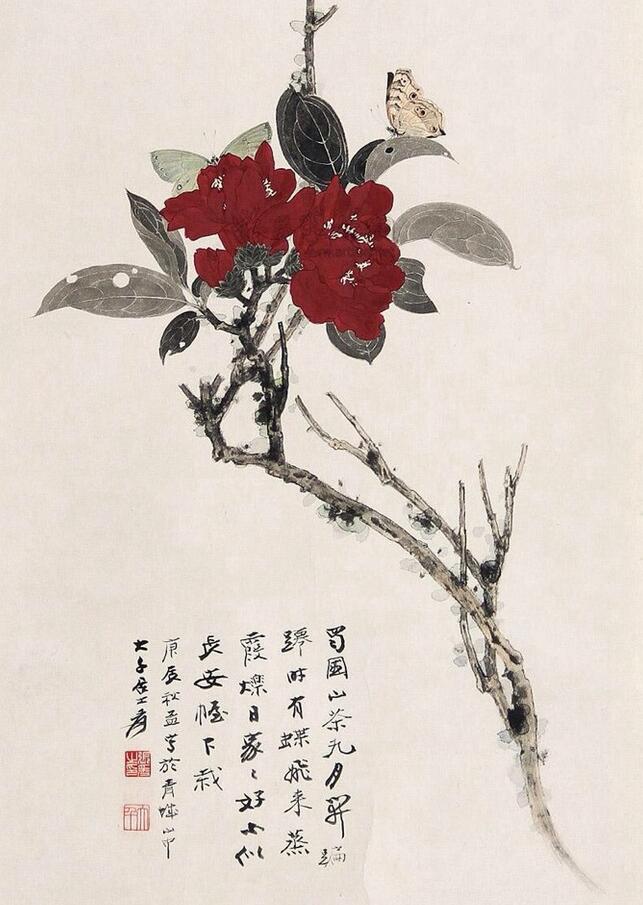 蜀國山茶九月開蹁
躚時有蝶飛来蒸
霞爍日家〻好不似
長安幄下栽
庚辰秋孟寫於青城山中
大千居士爰